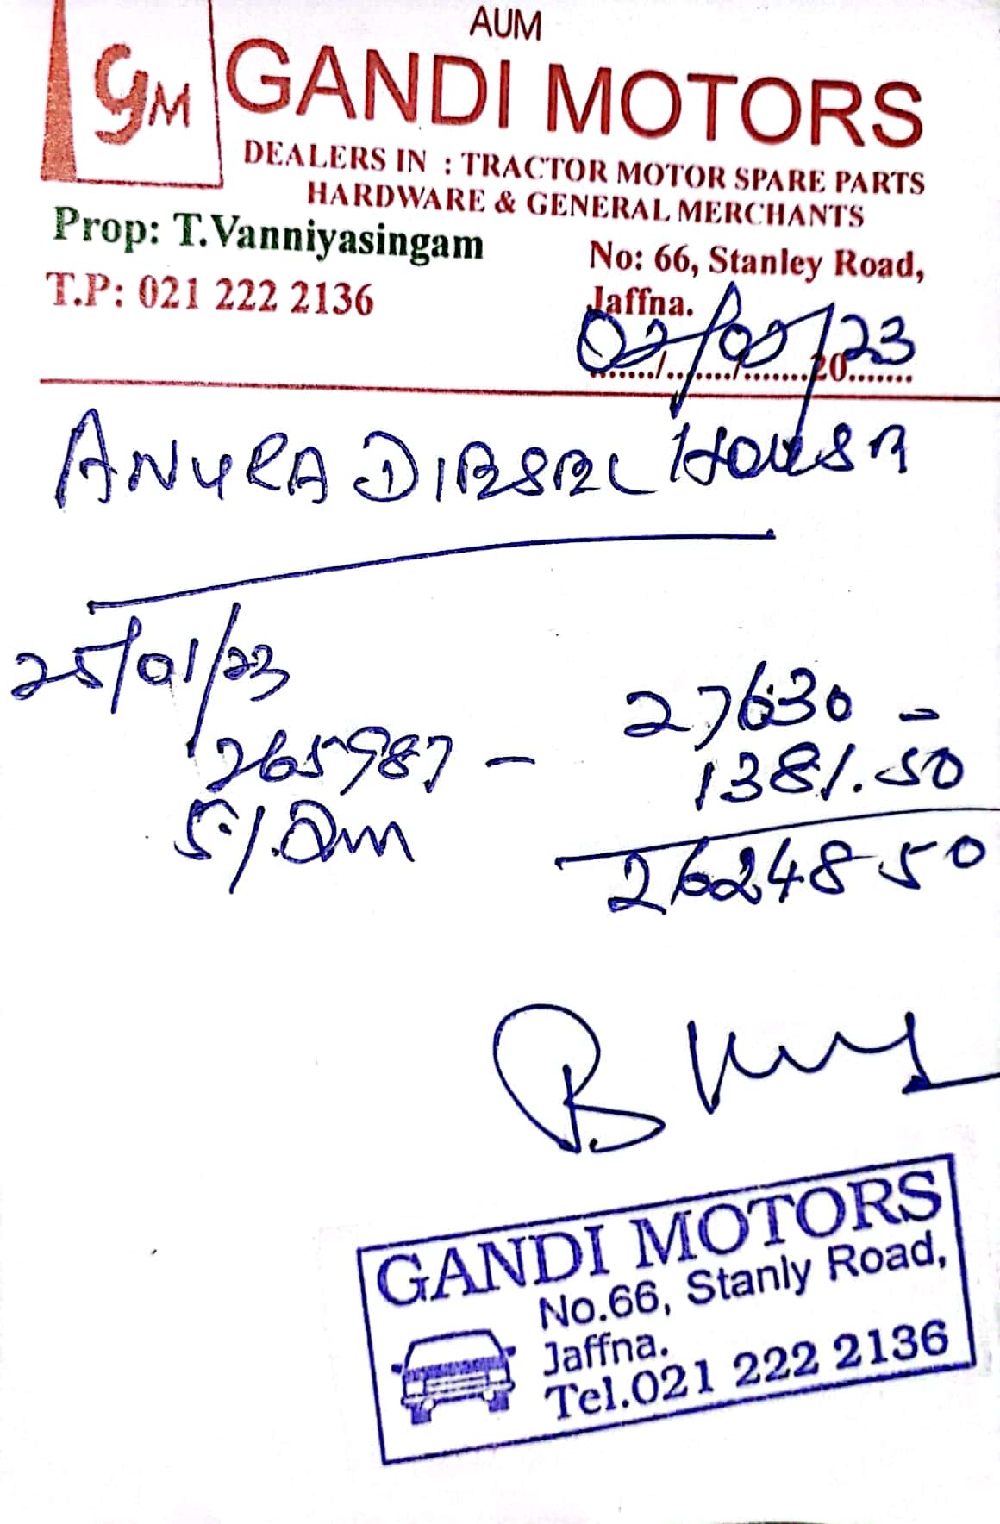 AUM
GM GANDI MOTORS
DEALERS IN : TRACTOR MOTOR SPARE PARTS
HARDWARE & GENERAL MERCHANTS
Prop: T.Vanniyasingam
No: 66, Stanley Road,
T.P: 021 222 2136
Jaffna.
02/02/2023
ANURA DIESEL HOUSE
25/01/23
27630 -
265987 -
1381.50
5%
26248 50
GANDI MOTORS
No.66, Stanly Road,
Jaffna.
Tel.021 222 2136